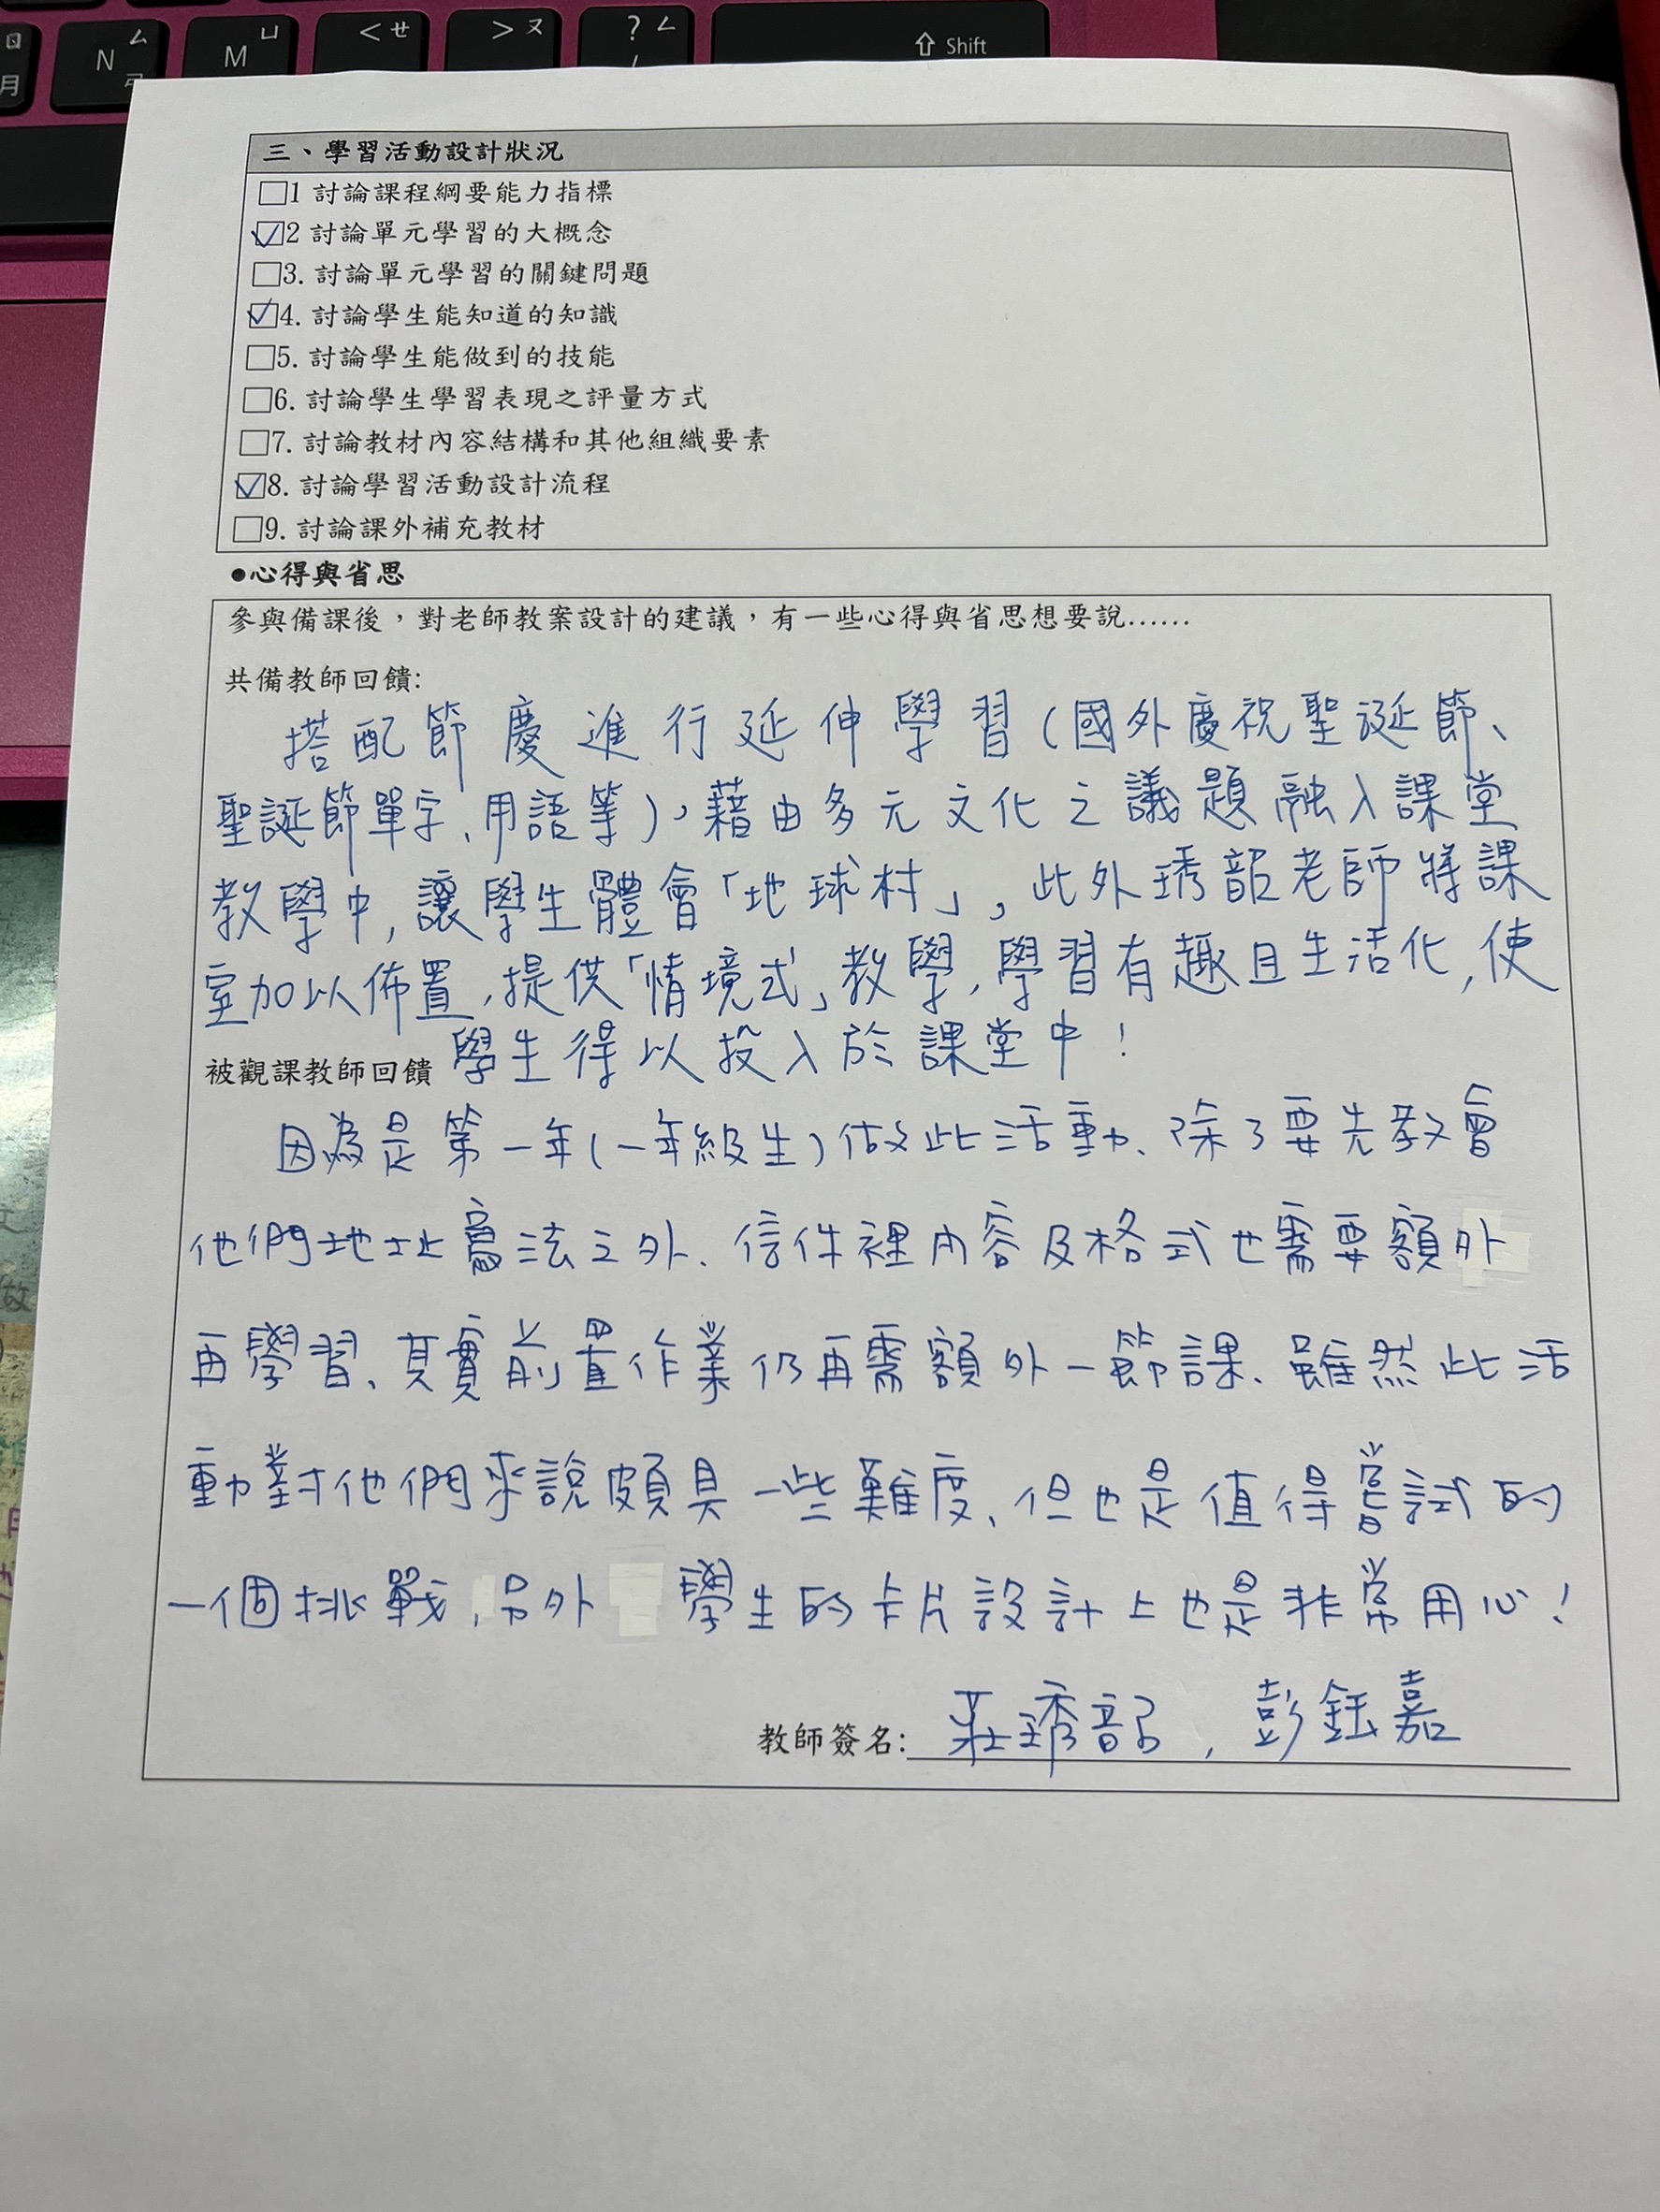 日
月
N ㄙ
M ㄩ
< ㄝ
> ㄡ
? ㄥ
/
⇧ Shift
三、學習活動設計狀況
□1 討論課程綱要能力指標
☑2 討論單元學習的大概念
□3. 討論單元學習的關鍵問題
☑4. 討論學生能知道的知識
□5. 討論學生能做到的技能
□6. 討論學生學習表現之評量方式
□7. 討論教材內容結構和其他組織要素
☑8. 討論學習活動設計流程
□9. 討論課外補充教材
●心得與省思
參與備課後，對老師教案設計的建議，有一些心得與省思想要說……
共備教師回饋:
搭配節慶進行延伸學習(國外慶祝聖誕節、
聖誕節單字、用語等)，藉由多元文化之議題融入課堂
教學中，讓學生體會「地球村」，此外琇韶老師將課
室加以佈置，提供「情境式」教學，學習有趣且生活化，使
學生得以投入於課堂中！
被觀課教師回饋
因為是第一年(一年級生)做此活動、除了要先教會
他們地址寫法之外、信件裡內容及格式也需要額外
再學習、其實前置作業仍再需額外一節課、雖然此活
動對他們來說頗具一些難度、但也是值得嘗試的
一個挑戰，另外 學生的卡片設計上也是非常用心！
教師簽名: 莊琇韶，彭鈺嘉